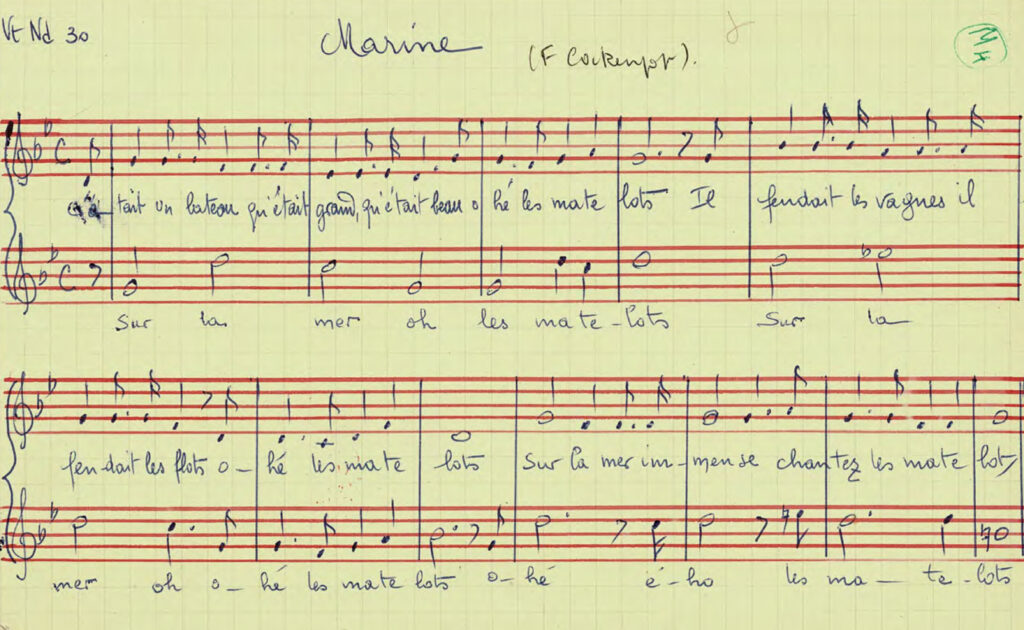 Vt Nd 30
Marine
(F Cockenpot).
C'é- tait un bateau qu'était grand, qu'était beau o hé les mate lots Il fendait les vagues il
Sur la mer oh les mate-lots Sur la
fen-dait les flots o-hé les mate lots Sur la mer im-mense chantez les mate lots
mer oh o-hé les mate lots o-hé é-ho les ma-te-lots